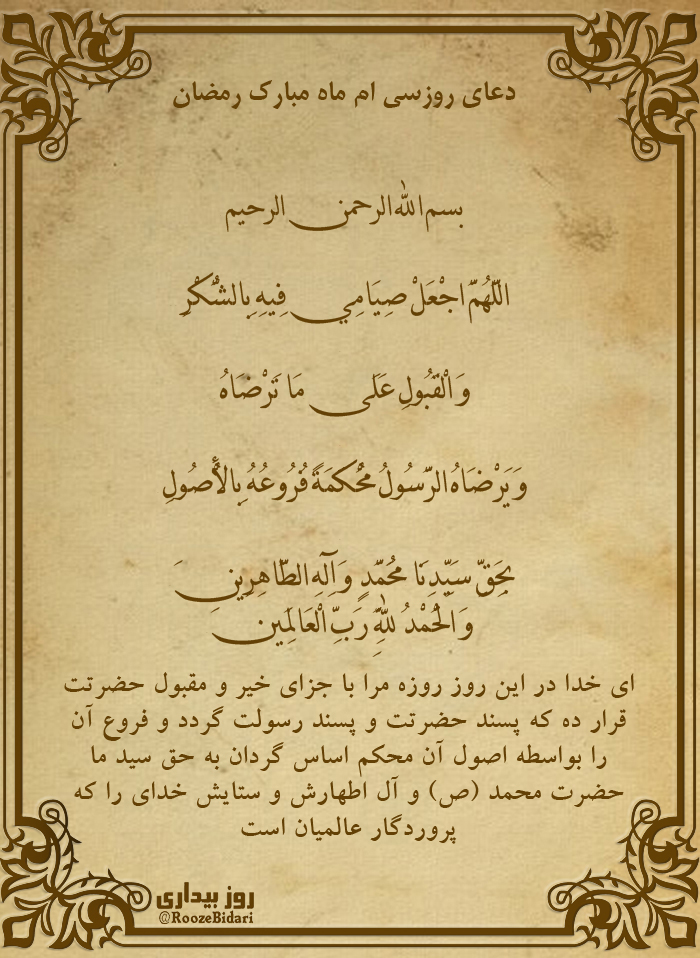 دعای روزسی ام ماه مبارک رمضان
بسم الله الرحمن الرحیم
اللّهُمّ اجْعَلْ صِیَامِی فِیهِ بِالشّکْرِ
وَ الْقَبُولِ عَلَى مَا تَرْضَاهُ
وَ یَرْضَاهُ الرّسُولُ مُحْکمَةً فُرُوعُهُ بِالأُصُولِ
بِحَقّ سَیّدِنَا مُحَمّدٍ وَ آلِهِ الطّاهِرِینَ
وَ الْحَمْدُ لِلّهِ رَبّ الْعَالَمِین
ای خدا در این روز روزه مرا با جزای خیر و مقبول حضرتت
قرار ده که پسند حضرتت و پسند رسولت گردد و فروع آن
را بواسطه اصول آن محکم اساس گردان به حق سید ما
حضرت محمد (ص) و آل اطهارش و ستایش خدای را که
پروردگار عالمیان است
روز بیداری
@RoozeBidari